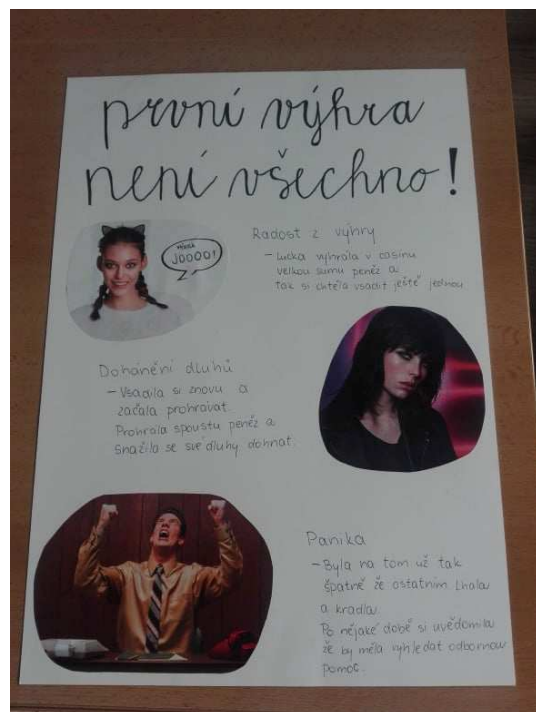 první výhra
není všechno!
JOOOO!
Radost z výhry
- Lucka vyhrála v casinu
velkou sumu peněz a
tak si chtěla vsadit ještě jednou.
Dohánění dluhů
- Vsadila si znovu a
začala prohrávat.
Prohrála spoustu peněz a
snažila se své dluhy dohnat.
Panika
- Byla na tom už tak
špatně že ostatním lhala
a kradla.
Po nějaké době si uvědomila
že by měla vyhledat odbornou
pomoc.